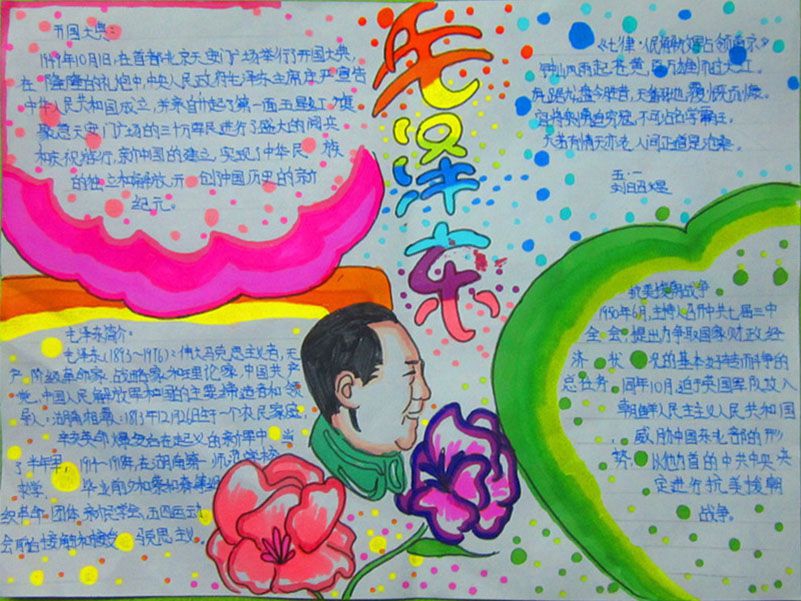 毛泽东
开国大典:
1949年10月1日,在首都北京天安门广场举行开国大典,
在隆隆的礼炮中,中央人民政府毛泽东主席庄严宣告
中华人民共和国成立,并亲自升起了第一面五星红旗
聚意天安门广场的三十万军民进行了盛大的阅兵
和庆祝游行,新中国的建立,实现了中华民族
的独立和解放,开创中国历史的新
纪元。
《七律·人民解放军占领南京》
钟山风雨起苍黄,百万雄师过大江。
虎踞龙盘今胜昔,天翻地覆慨而慷。
宜将剩勇追穷寇,不可沽名学霸王。
天若有情天亦老,人间正道是沧桑。
五·一
毛泽东简介:
毛泽东(1893~1976):伟大马克思主义者,无
产阶级革命家、战略家和理论家,中国共产
党、中国人民解放军和国的主要缔造者和领
导人;湖南湘潭;1893年12月26日生于一个农民家庭,
辛亥革命爆发后在起义的新军中当
了半年兵,1914~1918年,在湖南第一师范学校
求学,毕业前夕和蔡和森等组
织革命团体新民学会,五四运动
会前后接触和接受马克思主义。
抗美援朝战争
1950年6月,主持召开中共七届三中
全会,提出力争取国家财政经
济状况的基本好转而斗争的
总任务。同年10月,迫于美国军队攻入
朝鲜民主主义人民共和国
威胁中国东北部的形
势,以他为首的中共中央决
定进行抗美援朝
战争。